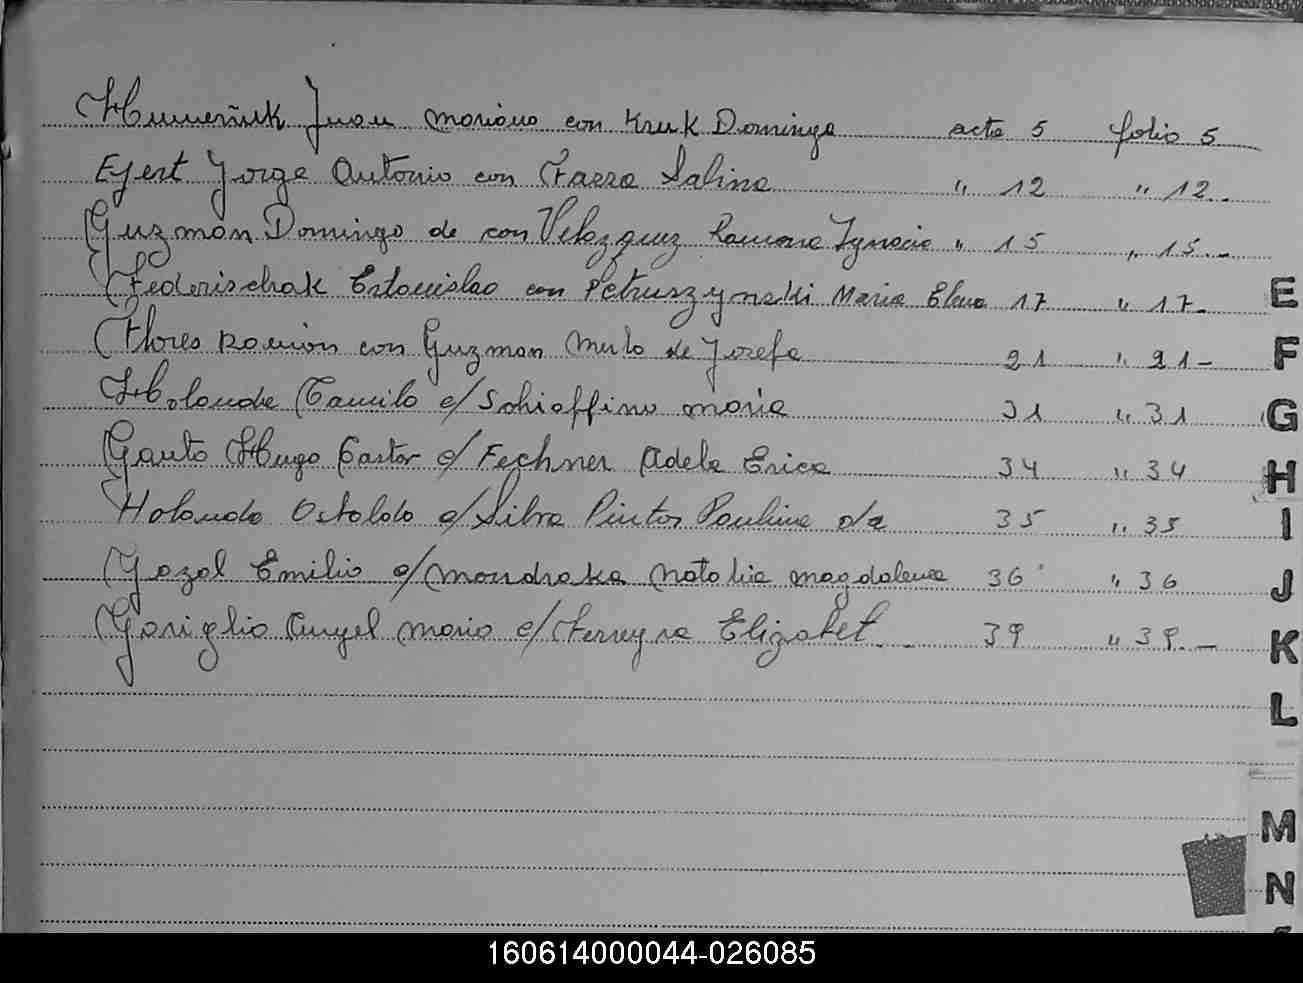 Humeniuk Juan Mariano con Kruk Dominga acta 5 folio 5
Eyert Jorge Antonio con Salina " 12 " 12.
Guzman Domingo de con Velazquez Ramona Ignacia " 15 " 15.-
Federischak Estanislao con Petruszynski Maria Elena 17 " 17.
Flores Ramon con Guzman Merlo de Josefa 21 " 21-
Holanda Camilo c/ Schiaffino Maria 31 " 31
Gauto Hugo Castor c/ Fechner Adela Erica 34 " 34
Holanda Osvaldo c/ Silva Pintos Paulina 35 " 35
Yazal Emilio c/ Mondraka Natalia Magdalena 36 " 36
Gariglio Angel Mario c/ Ferreyra Elizabet. 39 " 39.-
E
F
G
H
I
J
K
L
M
N
160614000044-026085